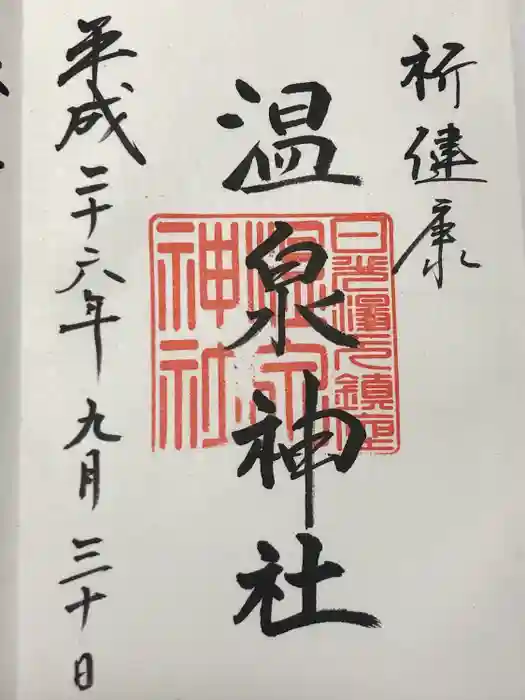 祈健康
温泉神社
平成二十六年九月三十日
温泉
神社